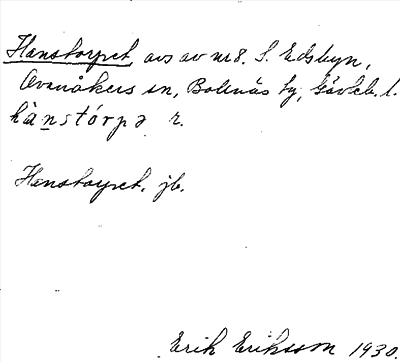 Hanstorpet avs av nr 8. S. Edsbyn,
Ovanåkers sn, Bollnäs tg, Gävleb. l.
hànstórpə r.
Hanstorpet. jb.
Erik Eriksson 1930.